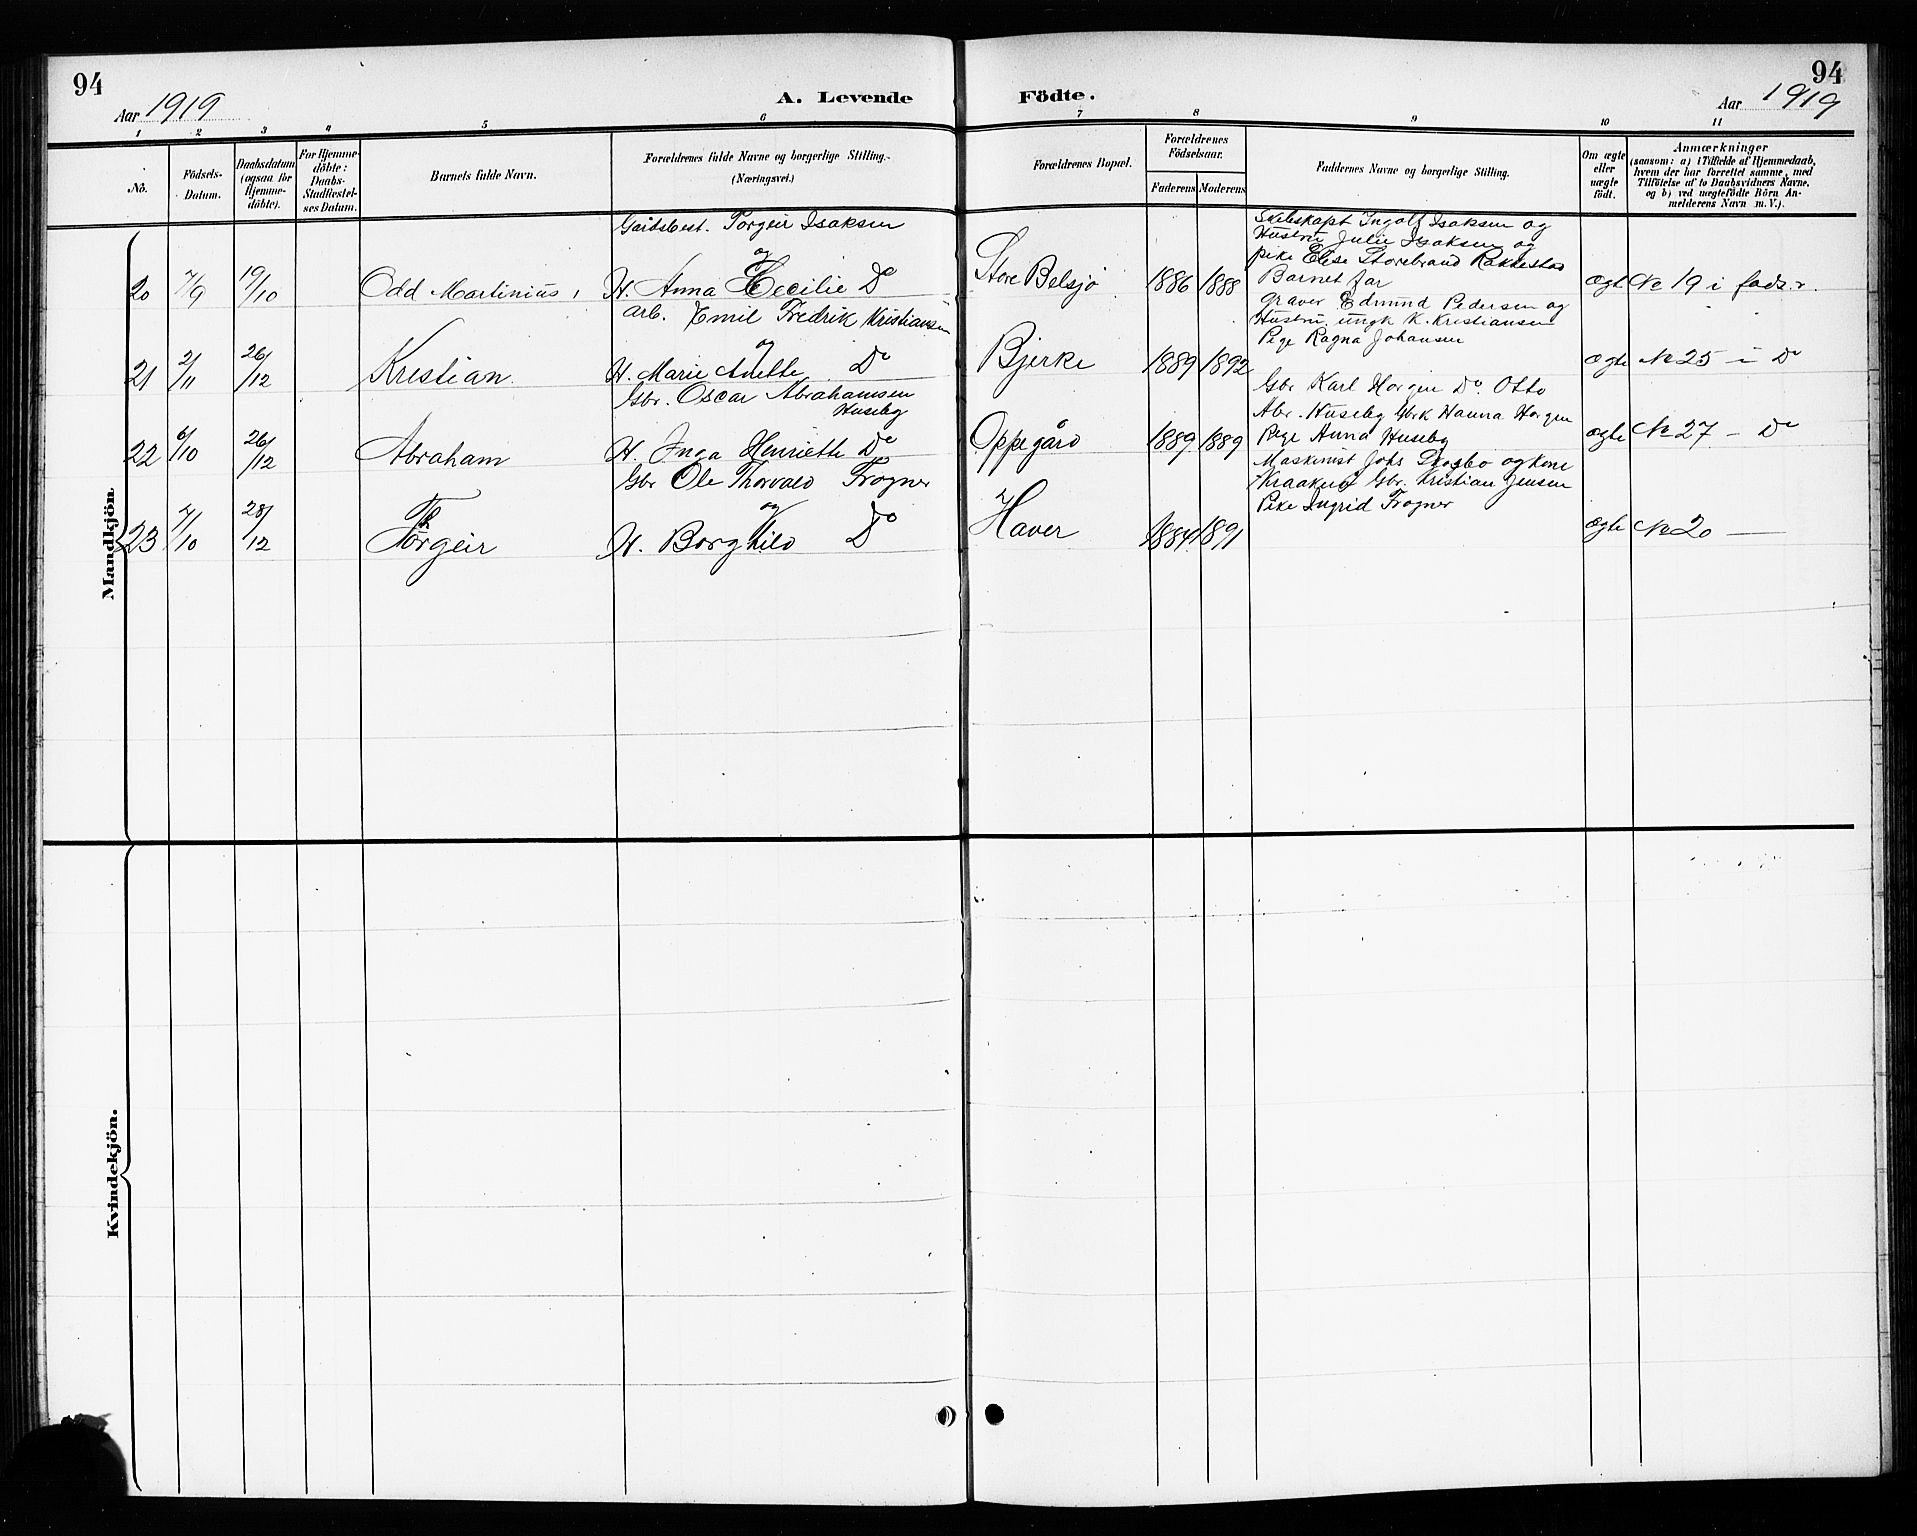 94
Aar 1919
A. Levende
Födte.
94
Aar 1919
1 2 3 4 5 6 7 8 9 10 11
No.
Födsels-
Datum.
Daabsdatum
(ogsaa for
Hjemme-
döbte).
For Hjemme-
döbte:
Daabs-
Stadfæstel-
ses Datum.
Barnets fulde Navn.
Forældrenes fulde Navne og borgerlige Stilling.
(Næringsvei.)
Forældrenes Bopæl.
Forældrenes
Födselsaar.
Faderens Moderens
Faddernes Navne og borgerlige Stilling.
Om ægte
eller
uægte
födt.
Anmærkninger
(saasom: a) i Tilfælde af Hjemmedaab,
hvem der har forrettet samme, med
Tilföielse af to Daabsvidners Navne,
og b) ved uægtefödte Börn An-
melderens Navn m. V.).
Mandkjön.
Gaardsbest. Torgeir Isaksen
og
20 7/9 19/10 Odd Martinius, H. Anna Cecilie Do Store Belsjø 1886 1888
Skibskapt Ingolf Isaksen og
Hustru Julie Isaksen og
pike Elise Storebrand Rakkestad
Barnet far
ægte No 19 i fods.r.
Arb. Emil Fredrik Kristiansen
og
21 2/11 26/12 Kristian. H. Marie Anette Do Bjerke 1889 1892
graver Edmund Pedersen og
Hustru, ungk K. Kristiansen
Pige Ragna Johansen
ægte No 25 i Do
Gbr. Oscar Abrahamsen
Huseby
22 6/10 26/12 Abraham H. Inga Henriette Do Oppegård 1889 1889
Gbr Karl Horgen Do Otto
Abr. Huseby Gbrk Hanna Horgen
Pige Anna Huseby
ægte No 27 - Do
Gbr Ole Thorvald Frogner
og
23 7/10 28/12 Torgeir H. Borghild Do Haver 1884 1891
Maskinist Johs Skogbo og kone
Kraakerø Gbr. Kristian Jensen
Pike Ingrid Frogner
ægte No 20 —
Th
Kvindekjön.